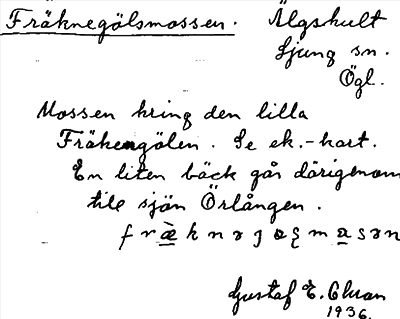 Fräknegölsmossen. Älgshult
Ljung sn.
Ögl.
Mossen kring den lilla
Fräkengölen. Se ek.-kart.
En liten bäck går därigenom
till sjön Örlången.
Gustaf E. Clason
1936.